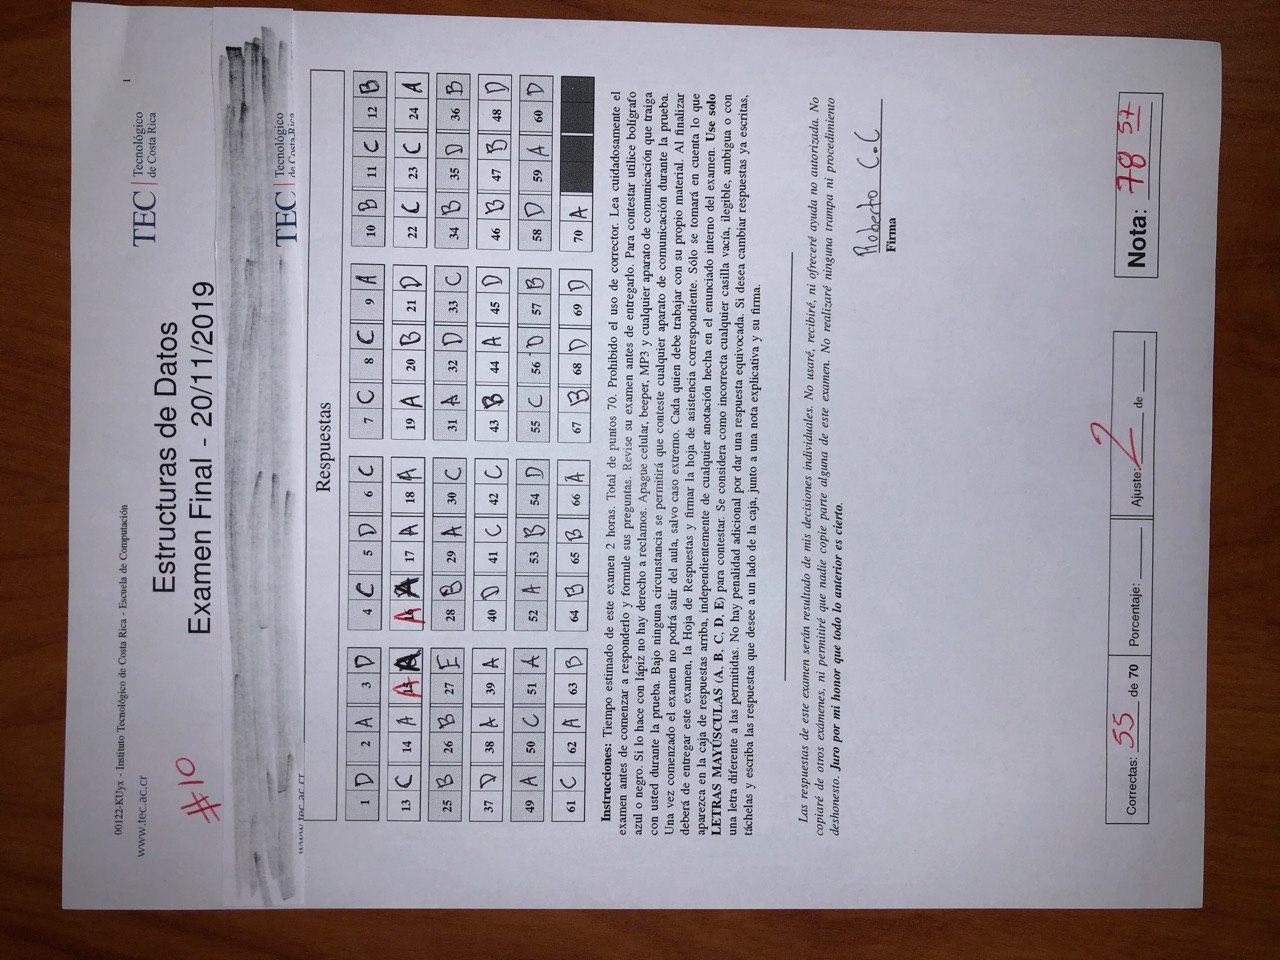 00122-KUyx - Instituto Tecnológico de Costa Rica - Escuela de Computación 1
www.tec.ac.cr
TEC | Tecnológico
de Costa Rica
#10
Estructuras de Datos
Examen Final - 20/11/2019
www.tec.ac.cr
TEC | Tecnológico
de Costa Rica
Respuestas
1 D 2 A 3 D 4 C 5 D 6 C 7 C 8 C 9 A 10 B 11 C 12 B
13 C 14 A A A A A 17 A 18 A 19 A 20 B 21 D 22 C 23 C 24 A
25 B 26 B 27 E 28 B 29 A 30 C 31 A 32 D 33 C 34 B 35 D 36 B
37 D 38 A 39 A 40 D 41 C 42 C 43 B 44 A 45 D 46 B 47 B 48 D
49 A 50 C 51 A 52 A 53 B 54 D 55 C 56 D 57 B 58 D 59 A 60 D
61 C 62 A 63 B 64 B 65 B 66 A 67 B 68 D 69 D 70 A
Instrucciones: Tiempo estimado de este examen 2 horas. Total de puntos 70. Prohibido el uso de corrector. Lea cuidadosamente el
examen antes de comenzar a responderlo y formule sus preguntas. Revise su examen antes de entregarlo. Para contestar utilice bolígrafo
azul o negro. Si lo hace con lápiz no hay derecho a reclamos. Apague celular, beeper, MP3 y cualquier aparato de comunicación que traiga
con usted durante la prueba. Bajo ninguna circunstancia se permitirá que conteste cualquier aparato de comunicación durante la prueba.
Una vez comenzado el examen no podrá salir del aula, salvo caso extremo. Cada quien debe trabajar con su propio material. Al finalizar
deberá de entregar este examen, la Hoja de Respuestas y firmar la hoja de asistencia correspondiente. Sólo se tomará en cuenta lo que
aparezca en la caja de respuestas arriba, independientemente de cualquier anotación hecha en el enunciado interno del examen. Use solo
LETRAS MAYÚSCULAS (A, B, C, D, E) para contestar. Se considera como incorrecta cualquier casilla vacía, ilegible, ambigua o con
una letra diferente a las permitidas. No hay penalidad adicional por dar una respuesta equivocada. Si desea cambiar respuestas ya escritas,
táchelas y escriba las respuestas que desee a un lado de la caja, junto a una nota explicativa y su firma.
Las respuestas de este examen serán resultado de mis decisiones individuales. No usaré, recibiré, ni ofreceré ayuda no autorizada. No
copiaré de otros exámenes, ni permitiré que nadie copie parte alguna de este examen. No realizaré ninguna trampa ni procedimiento
deshonesto. Juro por mi honor que todo lo anterior es cierto.
Roberto C.C
Firma
Correctas: 55 de 70 Porcentaje: Ajuste: 2 de
Nota: 78 57